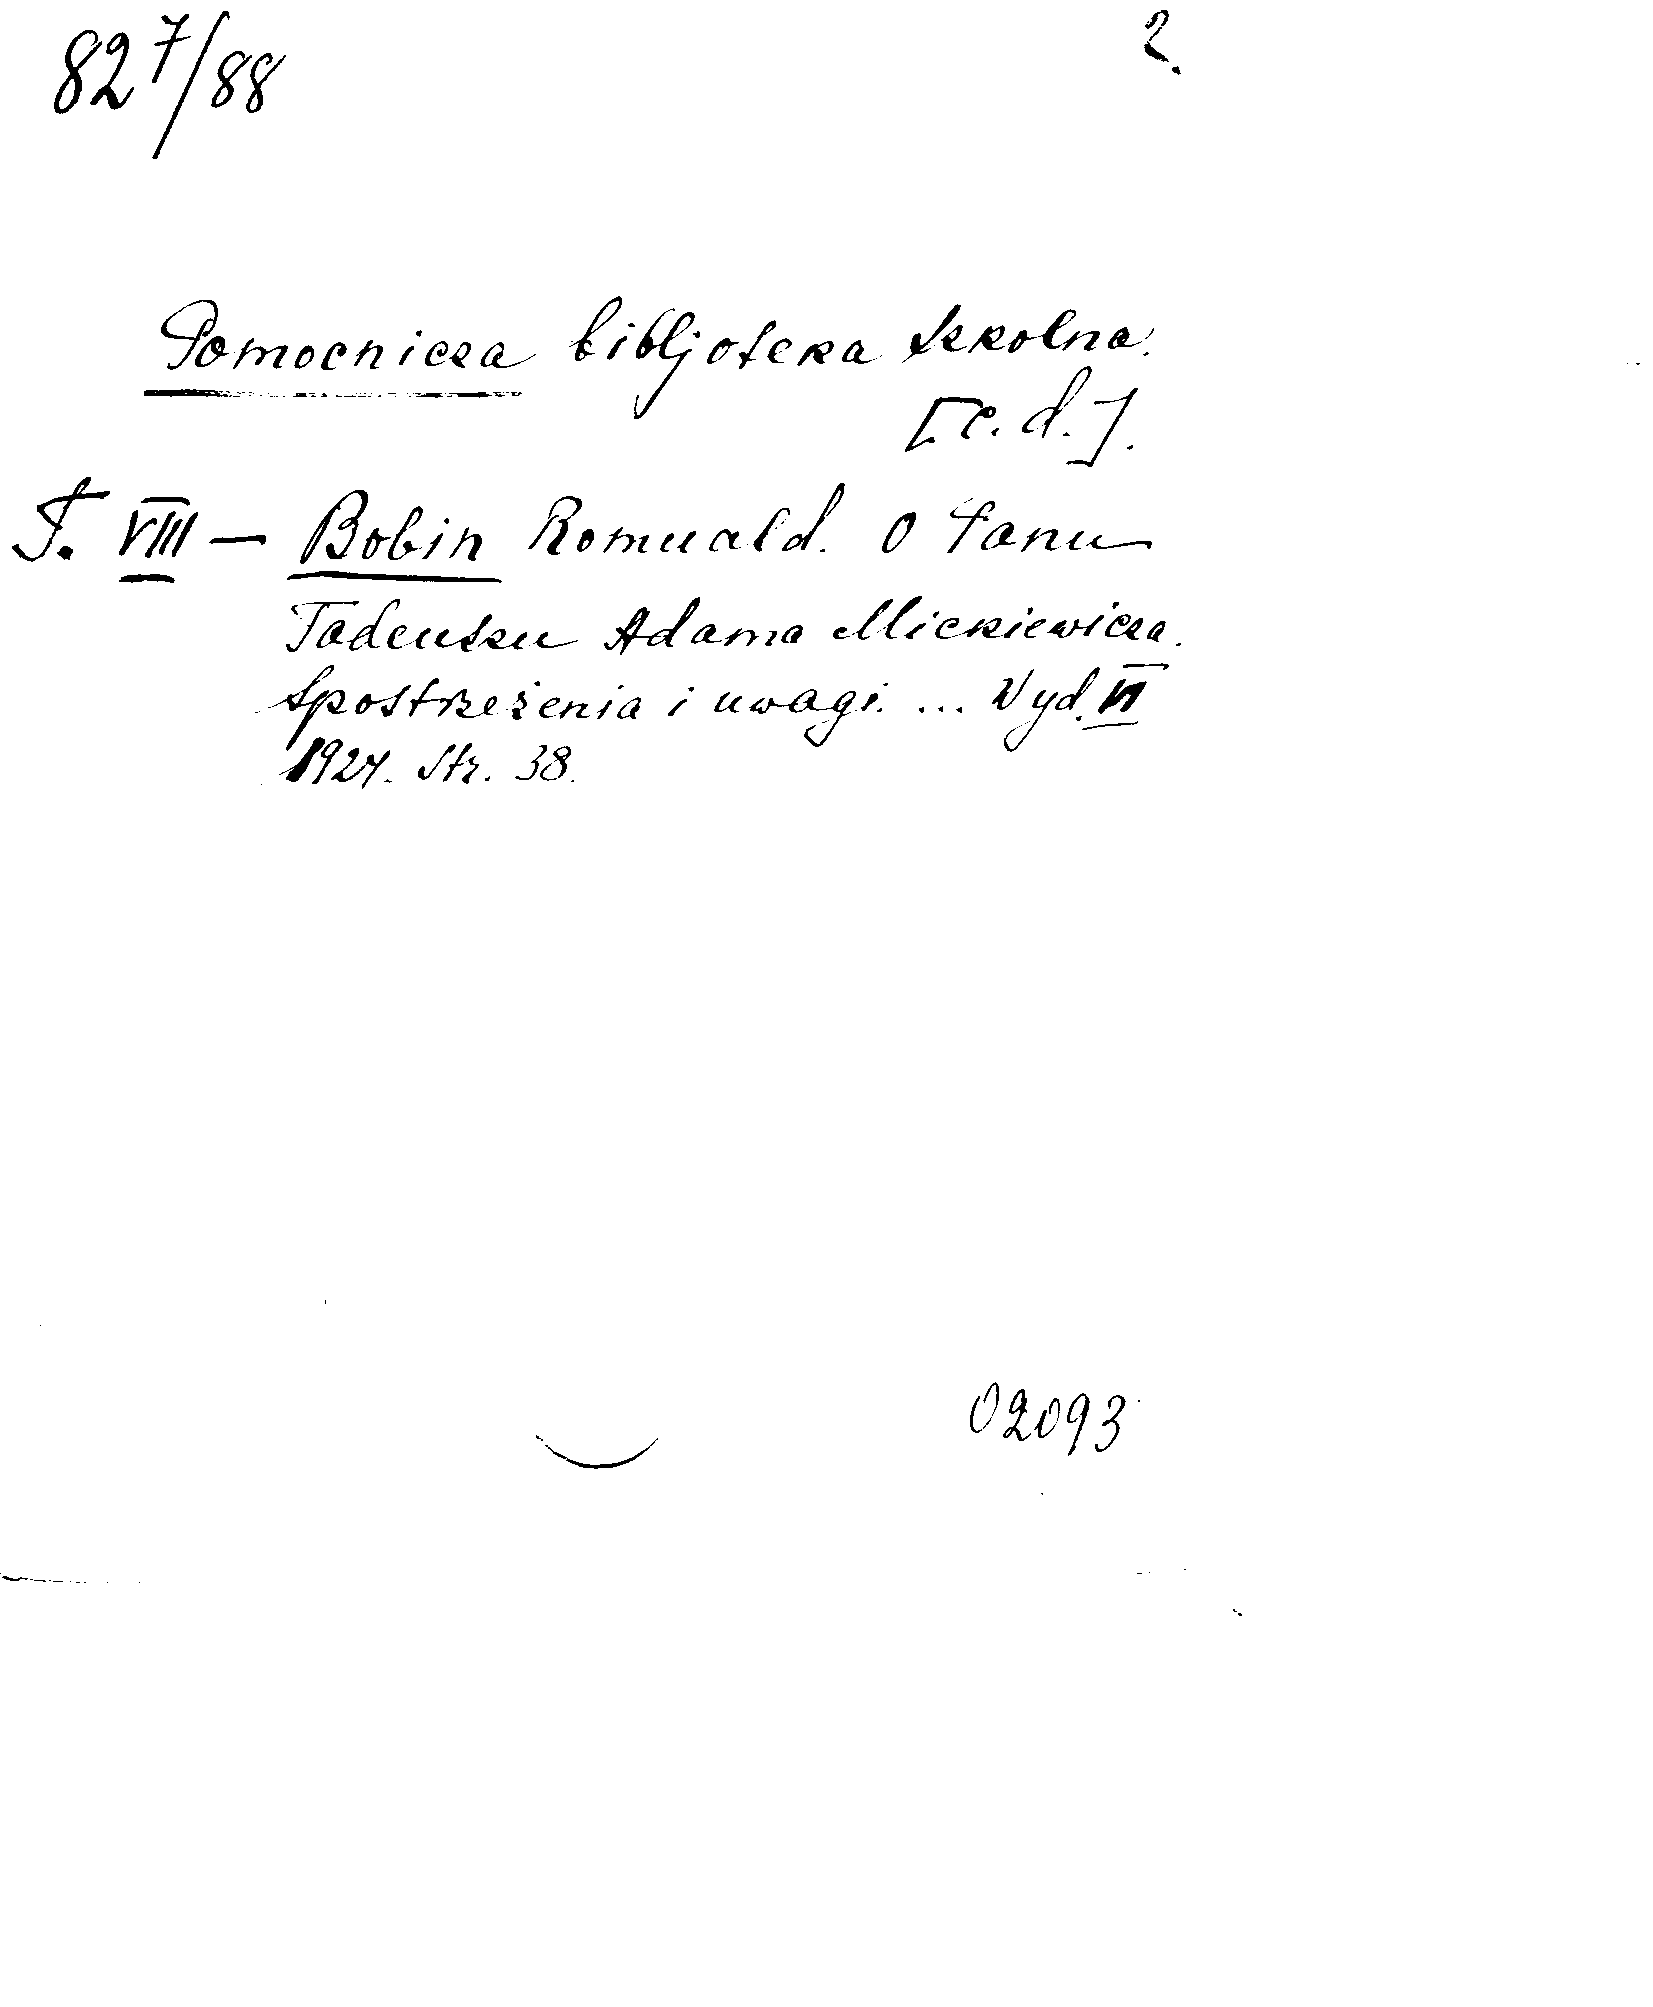 82 7/88
2.
Pomocnicza bibljoteka szkolna.
[c. d.].
T. VIII — Bobin Romuald. O Panu
Tadeuszu Adama Mickiewicza.
Spostrzeżenia i uwagi. ... Wyd. VI
1927. Str. 38.
02093